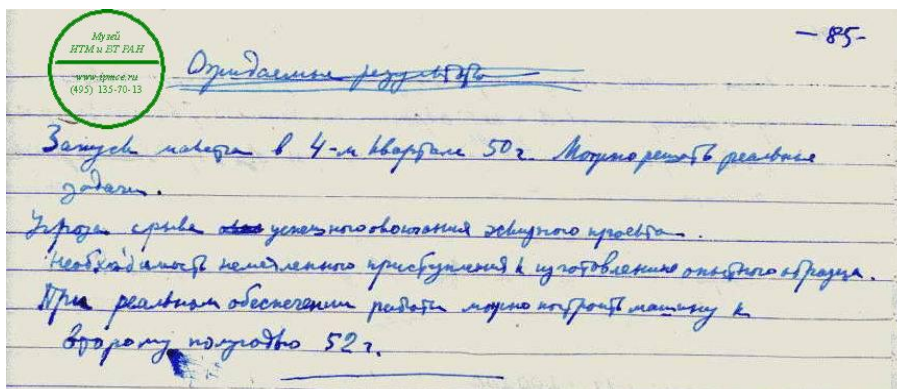 Музей
ИТМ и ВТ РАН
www.ipmce.ru
(495) 135-70-13
- 85-
Ожидаемые результаты
Запуск макета в 4-м квартале 50 г. Можно решать реальные
задачи.
Угроза срыва успешного окончания эскизного проекта.
Необходимость немедленного приступления к изготовлению опытного образца.
При реальном обеспечении работы можно построить машину к
второму полугодию 52 г.